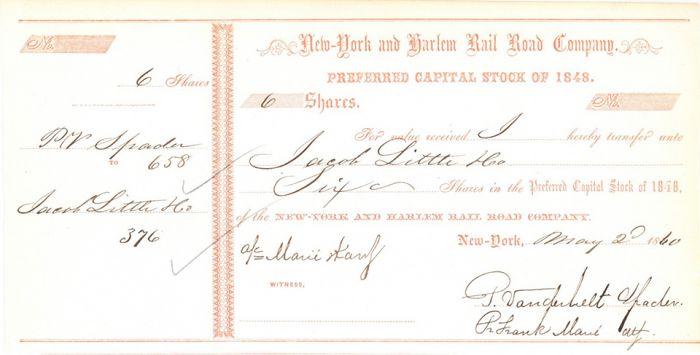 No.
6 Shares
P V Spader
TO
658
Jacob Little & Co
376
New-York and Harlem Rail Road Company.
PREFERRED CAPITAL STOCK OF 1848.
6 Shares. No.
For value received I hereby transfer unto
Jacob Little & Co
Six Shares in the Preferred Capital Stock of 1848,
of the NEW-YORK AND HARLEM RAIL ROAD COMPANY.
New-York, May 2d 1860
a/c Marié &
WITNESS,
P. Vanderbelt Spader.
Pr Frank Marié atty.